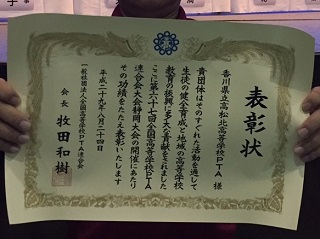 表彰状
香川県立高松北高等学校PTA 様
貴団体はそのすぐれた活動を通して
生徒の健全育成と地域の高等学校
教育の振興に多大な貢献をされました
ここに第六十七回全国高等学校PTA
連合会大会静岡大会の開催にあたり
その功績をたたえ表彰いたします
平成二十九年八月二十四日
一般社団法人全国高等学校PTA連合会
会長 牧田和樹